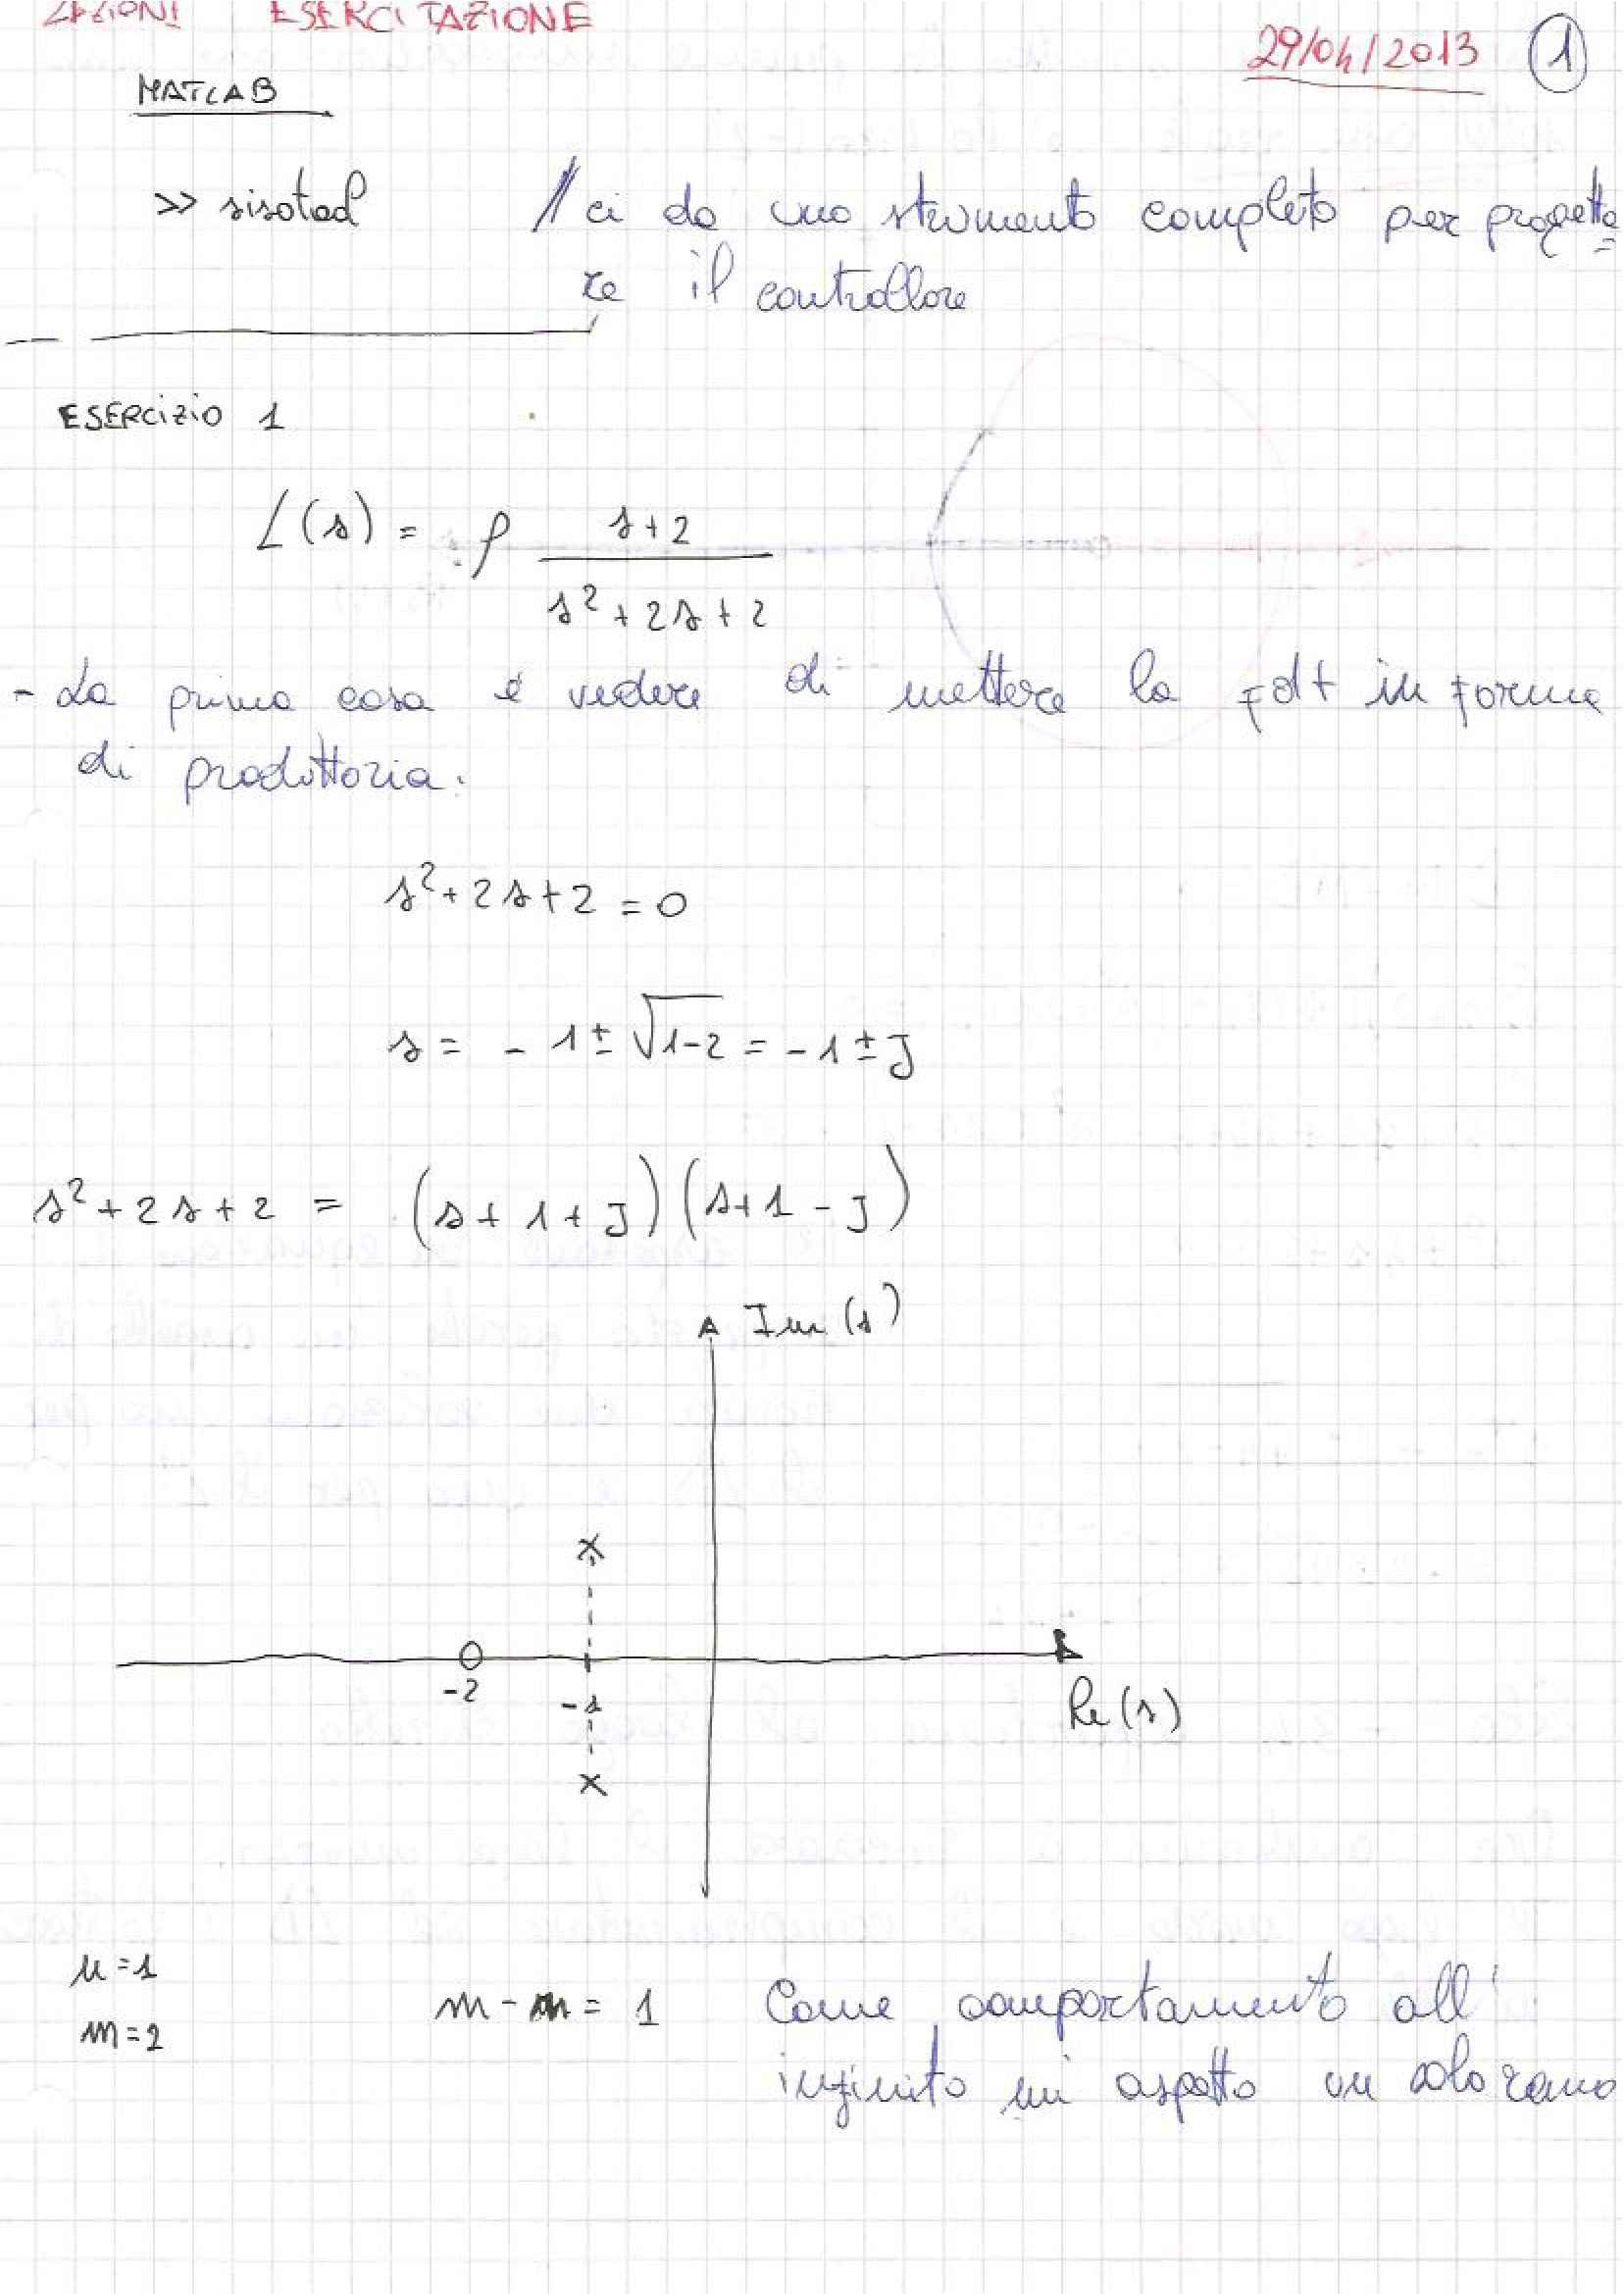 LEZIONI ESERCITAZIONE
29/04/2013 1
MATLAB
>> sisotool // ci da uno strumento completo per progetta=
re il controllore
ESERCIZIO 1
L(s) = ρ (s+2)/(s²+2s+2)
- La prima cosa è vedere di mettere la fdt in forma
di produttoria.
s²+2s+2=0
s = -1±√1-2 = -1±J
s²+2s+2 = (s+1+J)(s+1-J)
Im(s)
-2 -1
Re(s)
m=1
n=2
n-m=1 Come comportamento all'
infinito mi aspetto un solo ramo